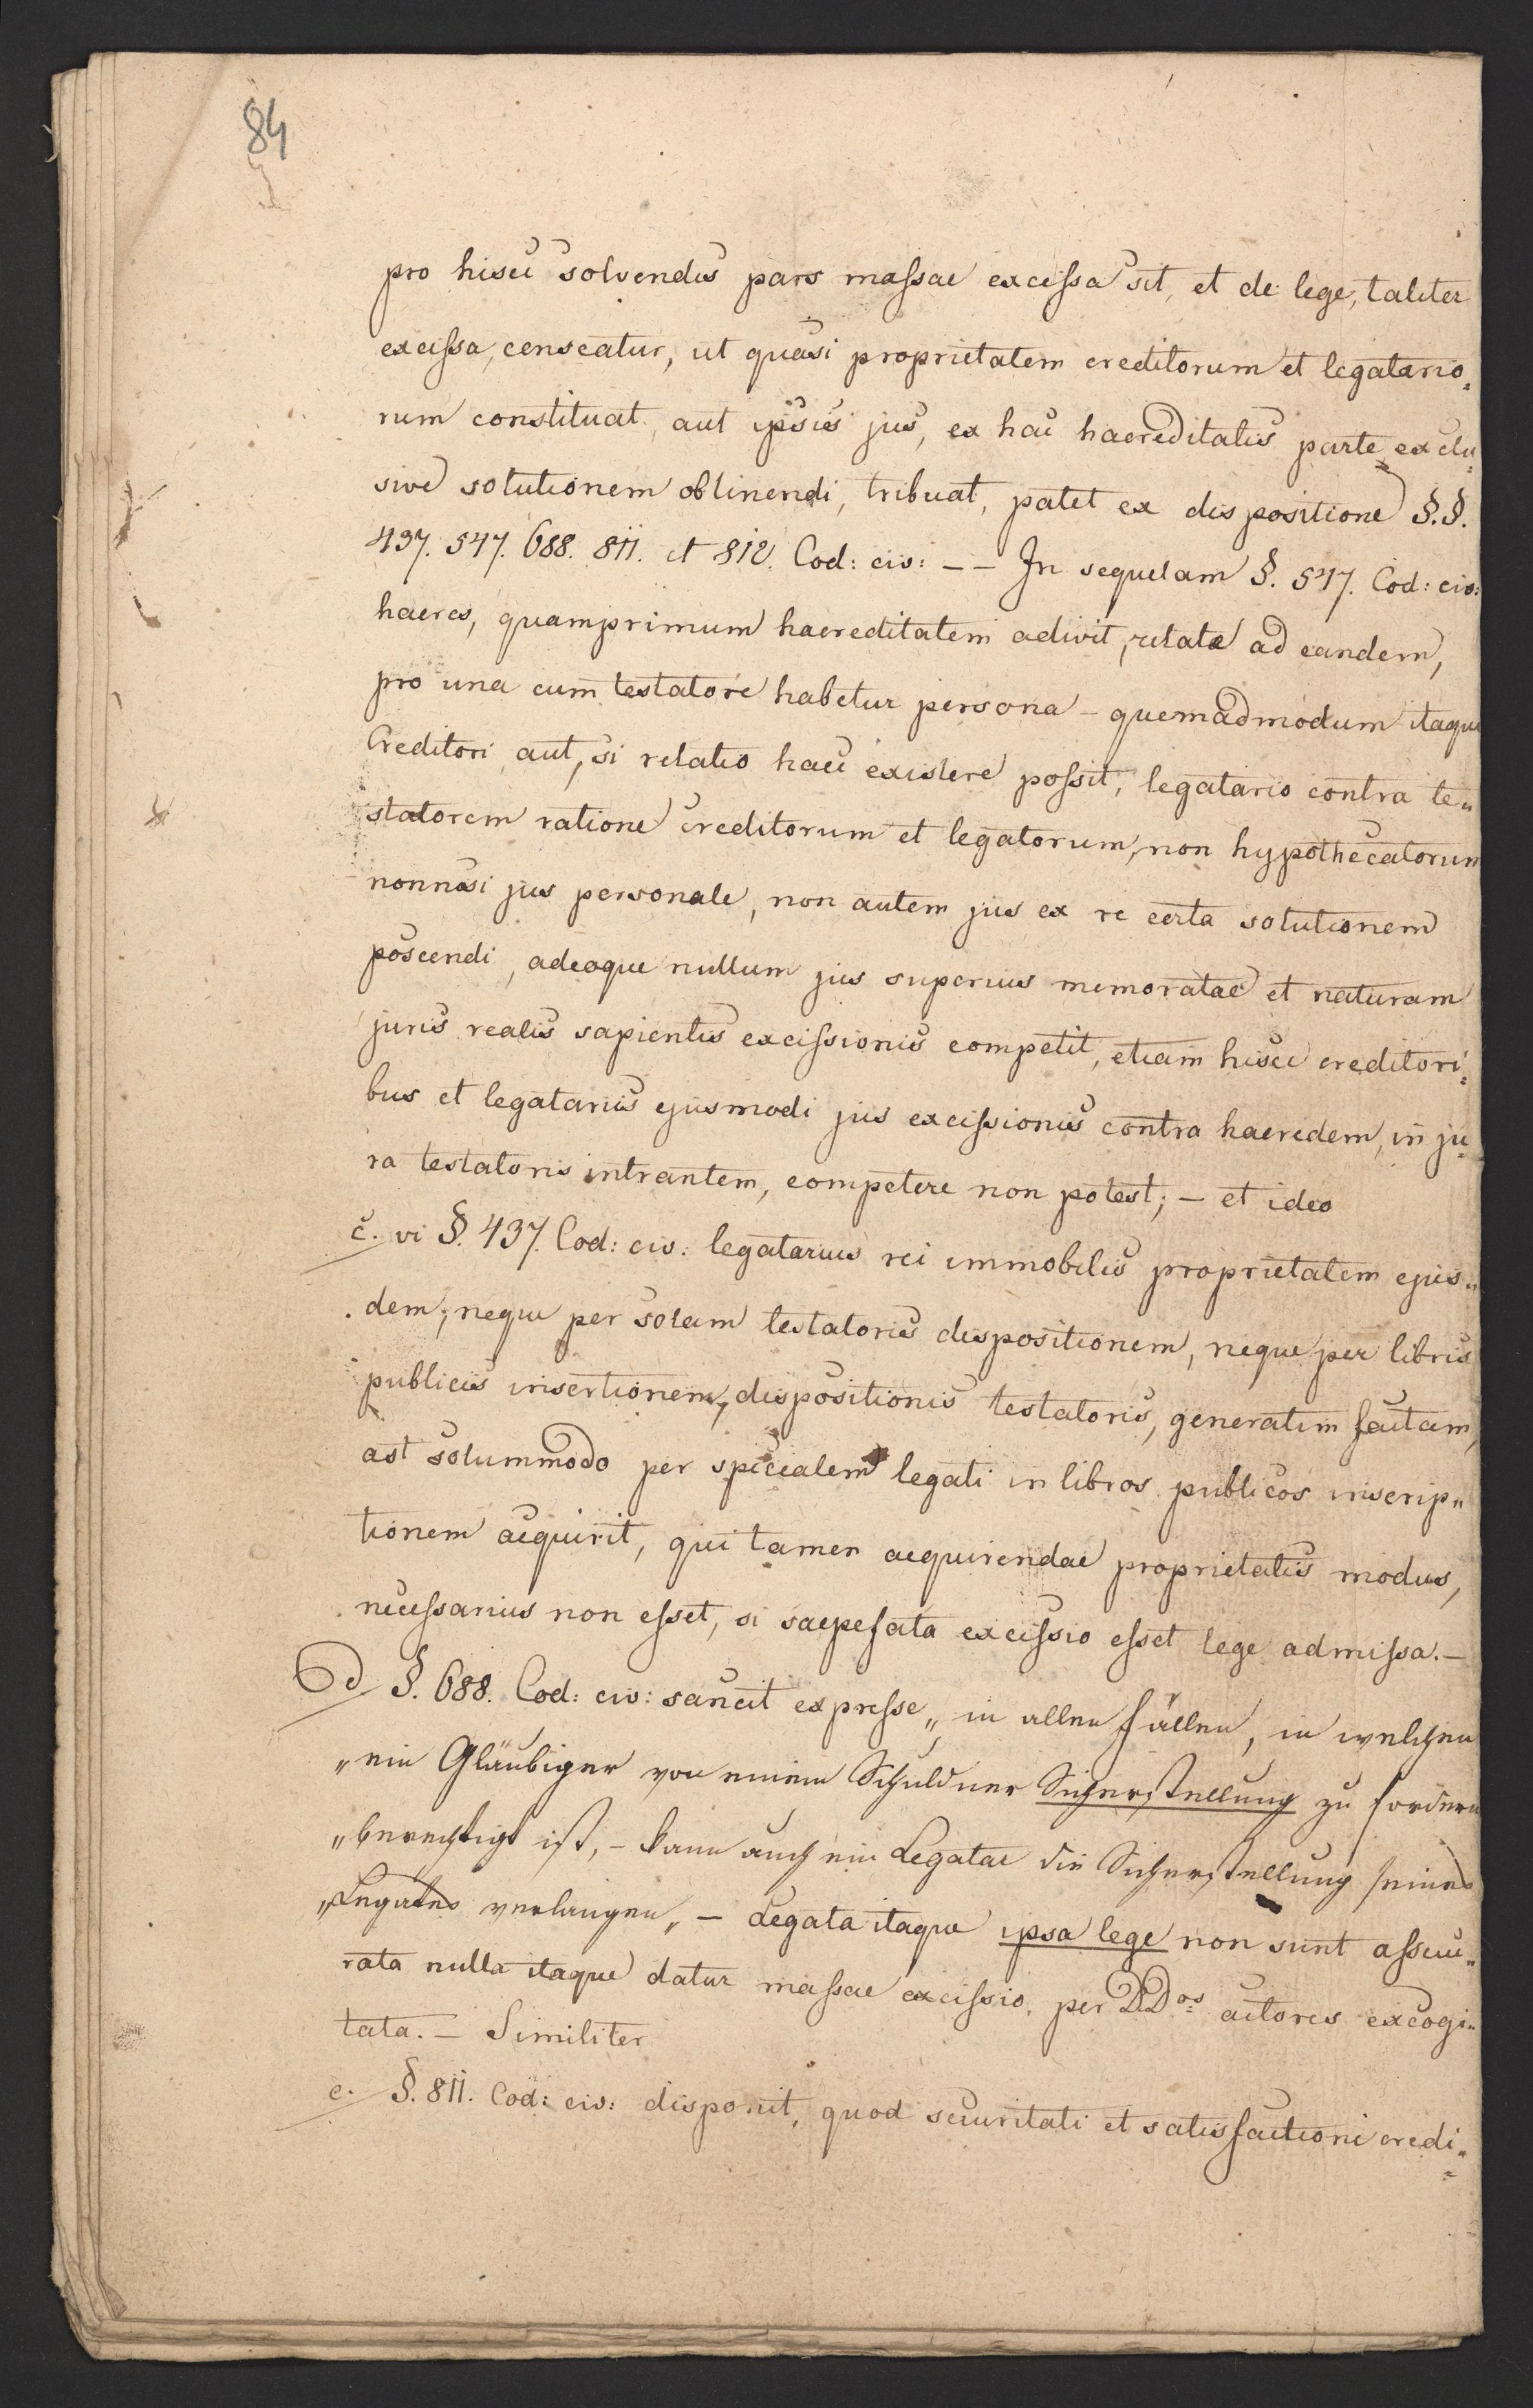 84
pro hisce solvendis pars massae excissa sit, et de lege, taliter
excissa, censeatur, ut quasi proprietatem creditorum et legatario„
rum constituat, aut ipsis jus, ex hac haereditatis parte exclu„
sive solutionem obtinendi, tribuat, patet ex dispositione §.§.
437. 547. 688. 811. et 812. Cod: civ: – – In sequelam §. 547. Cod: civ:
haeres, quamprimum haereditatem adivit, relate ad eandem,
pro una cum testatore habetur persona – quemadmodum itaque
Creditori, aut, si relatio haec existere possit, legatario contra te„
statorem ratione creditorum et legatorum, non hypothecatorum
nonnisi jus personale, non autem jus ex re certa solutionem
poscendi, adeoque nullum jus superius memoratae et naturam
juris realis sapientis excissionis competit, etiam hisce creditori„
bus et legatariis ejusmodi jus excissionis contra haeredem, in ju„
ra testatoris intrantem, competere non potest; – et ideo
c. vi §. 437. Cod: civ: legatarius rei immobilis proprietatem ejus„
dem, neque per solam testatoris dispositionem, neque per libris
publicis insertionem, dispositionis testatoris, generatim factam,
ast solummodo per specialem legati in libros publicos inscrip„
tionem acquirit, qui tamen acquirendae proprietatis modus,
necessarius non esset, si saepefata excissio esset lege admissa. –
d §. 688. Cod: civ: sancit expresse „ in allen Fällen, in welchen
„ ein Gläubiger von einem Schuldner Sicherstellung zu fordern
„ berechtigt ist, – kann auch ein Legatar die Sicherstellung seines
„ Legates verlangen „ – Legata itaque ipsa lege non sunt assecu„
rata nulla itaque datur massae excissio, per DDos actores excogi„
tata. – Similiter
e. §. 811. Cod: civ: disponit, quod securitati et satisfactioni credi„